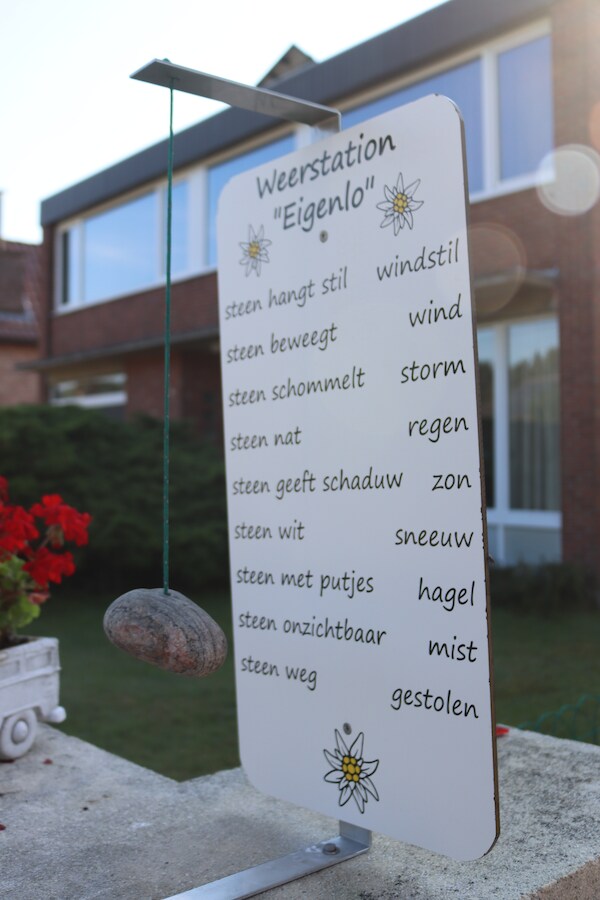 Weerstation
"Eigenlo"
steen hangt stil windstil
steen beweegt wind
steen schommelt storm
steen nat regen
steen geeft schaduw zon
steen wit sneeuw
steen met putjes hagel
steen onzichtbaar mist
steen weg gestolen